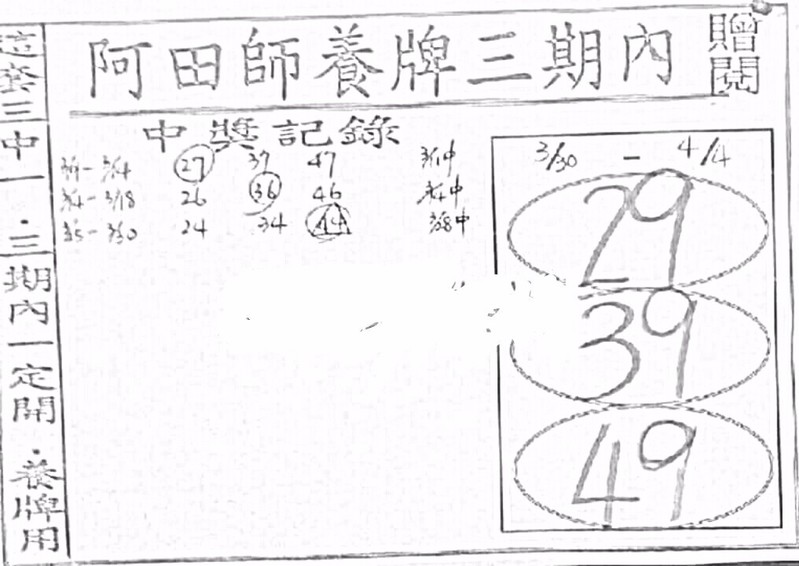 阿田師養牌三期內
贈閱
這套三中一．三期內一定開．養牌用
中獎記錄
27 37 47 3/11中
3/14-3/18 26 36 46 3/14中
24 34 44 3/28中
3/30 - 4/4
29
39
49